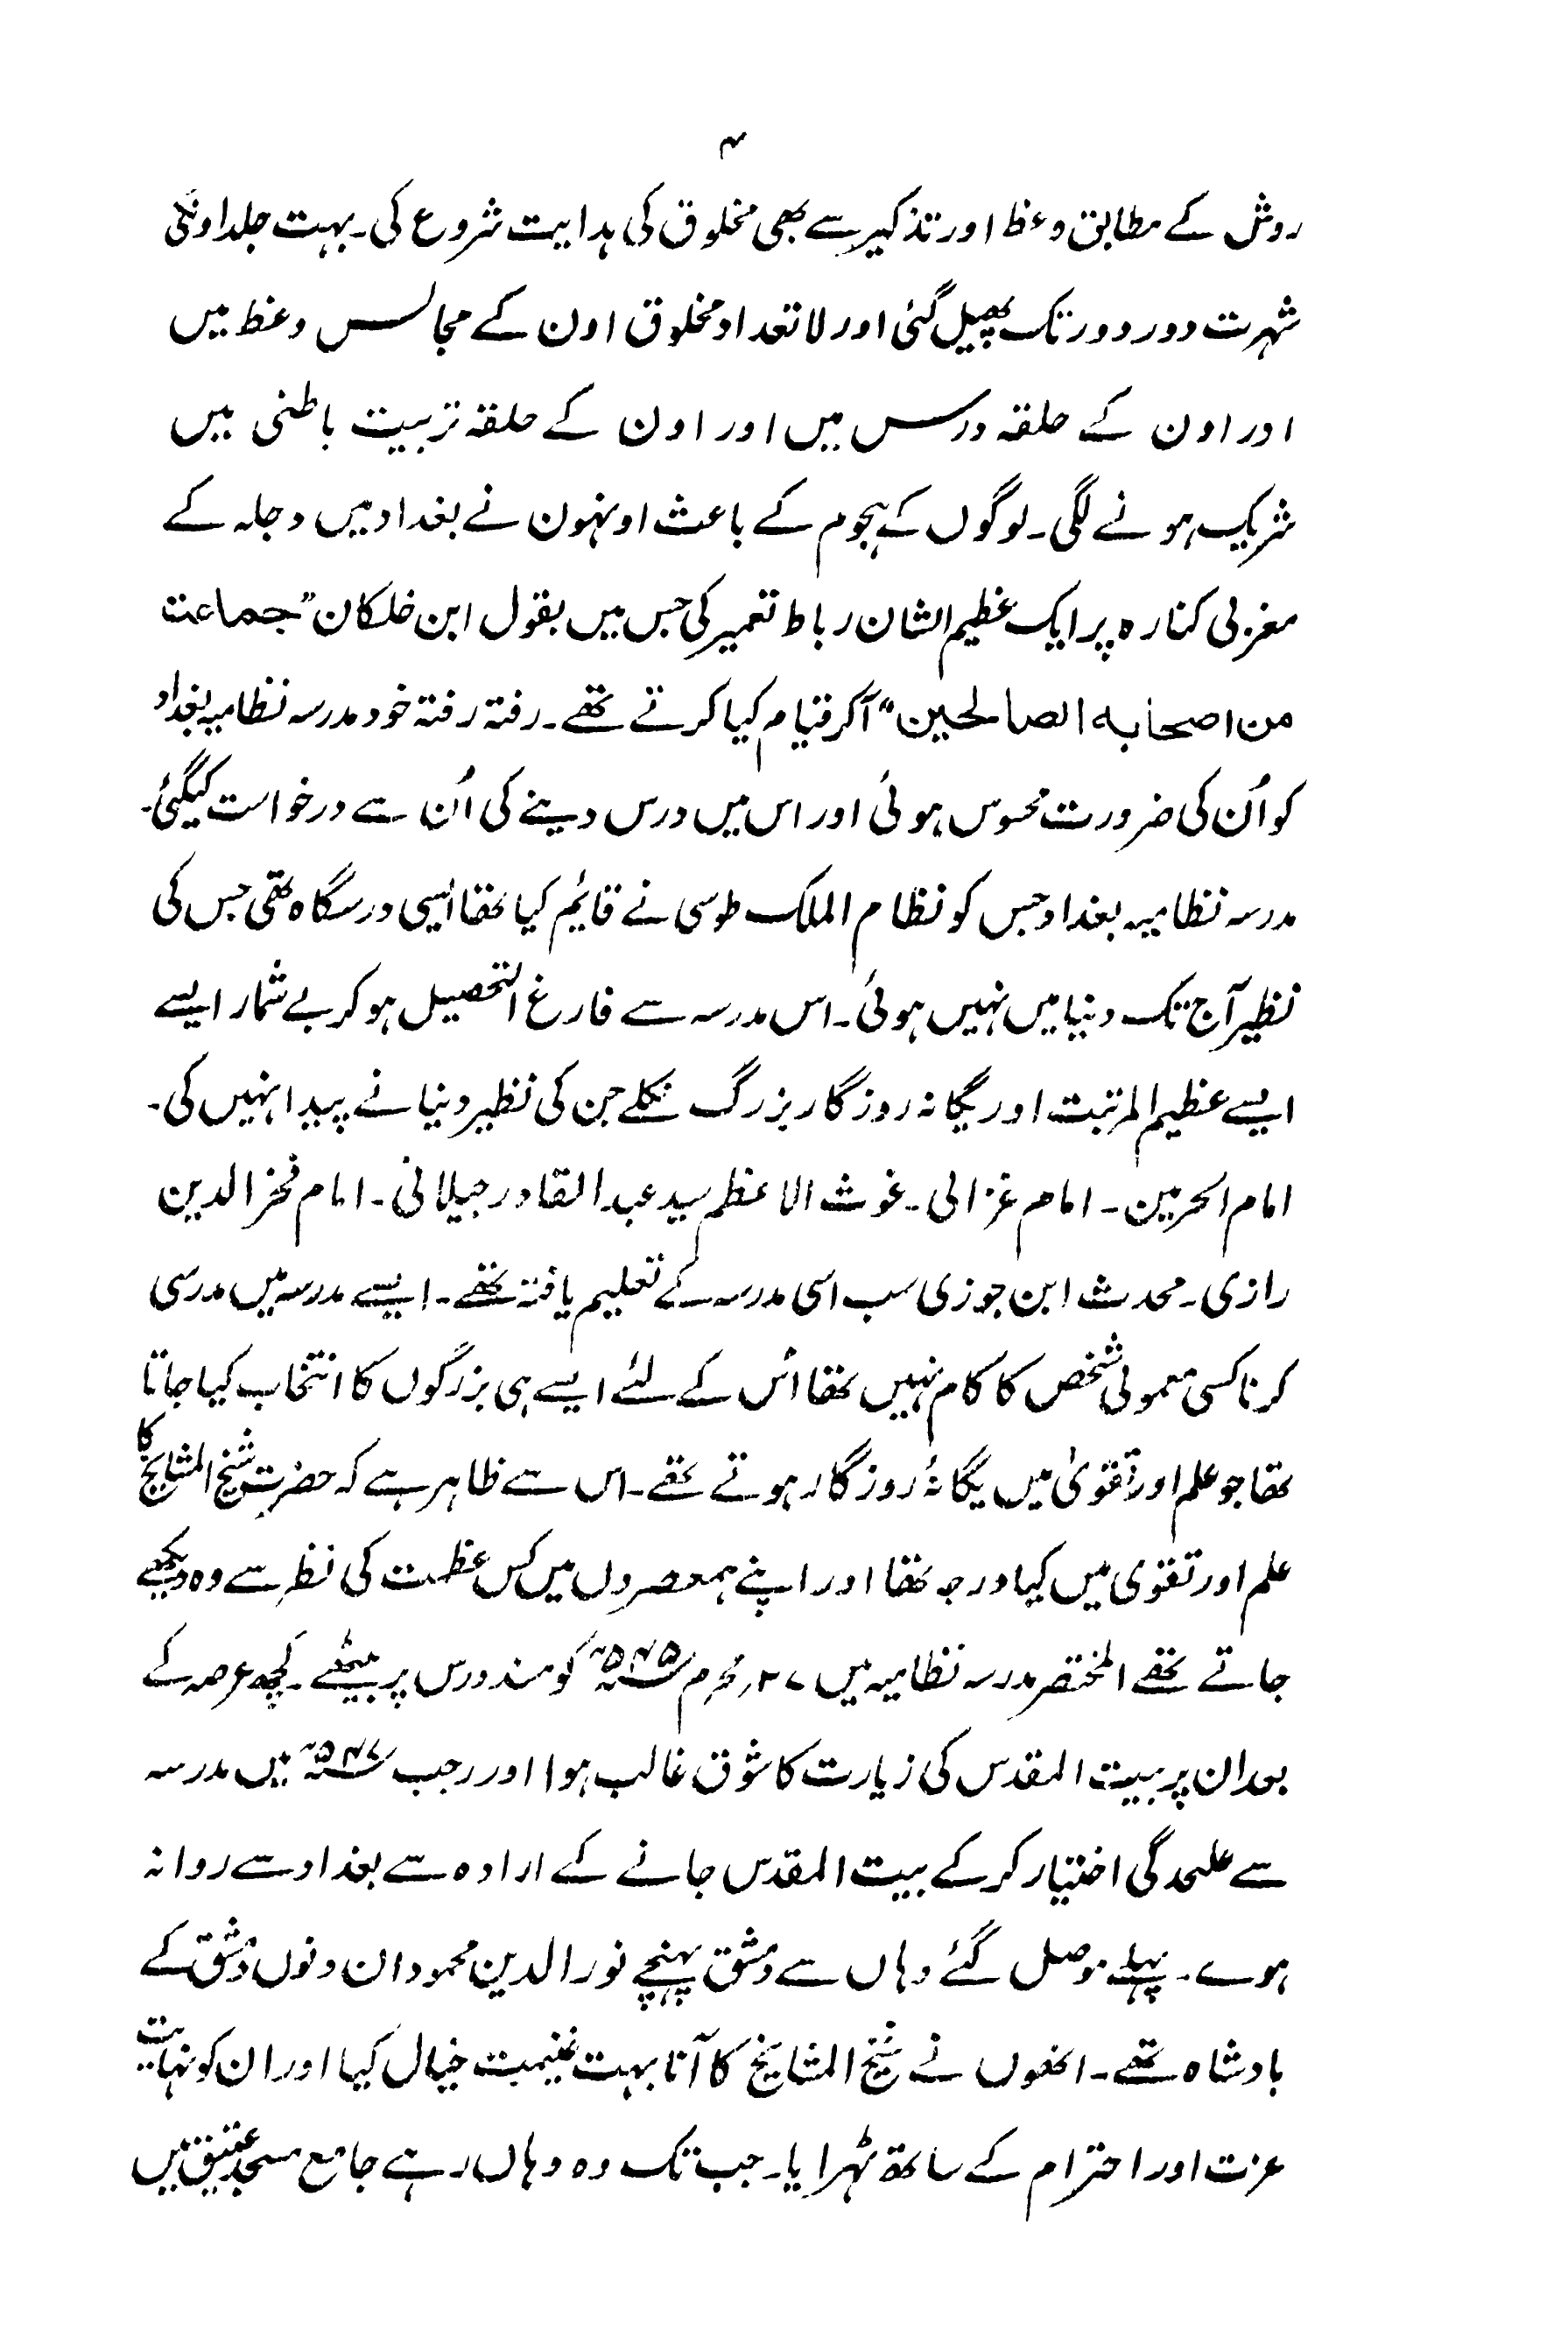 ۴
روش کے مطابق وعظ اور تذکیر سے بھی مخلوق کی ہدایت شروع کی۔ بہت جلد اونکی
شہرت دور دور تک پھیل گئی اور لا تعداد مخلوق اون کے مجالس وعظ میں
اور اون کے حلقہ درس میں اور اون کے حلقہ تربیت باطنی میں
شریک ہونے لگی۔ لوگوں کے ہجوم کے باعث اونہون نے بغداد میں دجلہ کے
مغربی کنارہ پر ایک عظیم الشان رباط تعمیر کی جس میں بقول ابن خلکان "جماعت
من اصحابہ الصالحین" آکر قیام کیا کرتے تھے۔ رفتہ رفتہ خود مدرسہ نظامیہ بغداد
کو اُن کی ضرورت محسوس ہوئی اور اس میں درس دینے کی اُن سے درخواست کیگئی۔
مدرسہ نظامیہ بغداد جس کو نظام الملک طوسی نے قائیم کیا تھا ایسی درسگاہ تھی جس کی
نظیر آج تک دنیا میں نہیں ہوئی۔ اس مدرسہ سے فارغ التحصیل ہو کر بے شمار ایسے
ایسے عظیم المرتبت اور یگانہ روزگار بزرگ نکلے جن کی نظیر دنیا نے پیدا نہیں کی۔
امام الحرمین۔ امام غزالی۔ غوث الاعظم سید عبد القادر جیلانی۔ امام فخر الدین
رازی۔ محدث ابن جوزی سب اسی مدرسہ کے تعلیم یافتہ تھے۔ ایسے مدرسہ میں مدرسی
کرنا کسی معمولی شخص کا کام نہیں تھا اُس کے لئے ایسے ہی بزرگوں کا انتخاب کیا جاتا
تھا جو علم اور تقویٰ میں یگانۂ روزگار ہوتے تھے۔ اس سے ظاہر ہے کہ حضرت شیخ المشایخ کا
علم اور تقوی میں کیا درجہ تھا اور اپنے ہمعصروں میں کس عظمت کی نظر سے وہ دیکھے
جاتے تھے المختصر مدرسہ نظامیہ میں ۲۷؍ محرم سنہ ۵۴۵ھ کو مسند درس پر بیٹھے۔ کچھ عرصہ کے
بعد ان پر بیت المقدس کی زیارت کا شوق غالب ہوا اور رجب سنہ ۵۴۷ھ میں مدرسہ
سے علحدگی اختیار کر کے بیت المقدس جانے کے ارادہ سے بغداد سے روانہ
ہوے۔ پہلے موصل گئے وہاں سے دمشق پہنچے نور الدین محمود ان دنوں دمشق کے
بادشاہ تھے۔ انھوں نے شیخ المشایخ کا آنا بہت غنیمت خیال کیا اور ان کو نہایت
عزت اور احترام کے ساتھ ٹہرایا۔ جب تک وہ وہاں رہے جامع مسجد عتیق میں